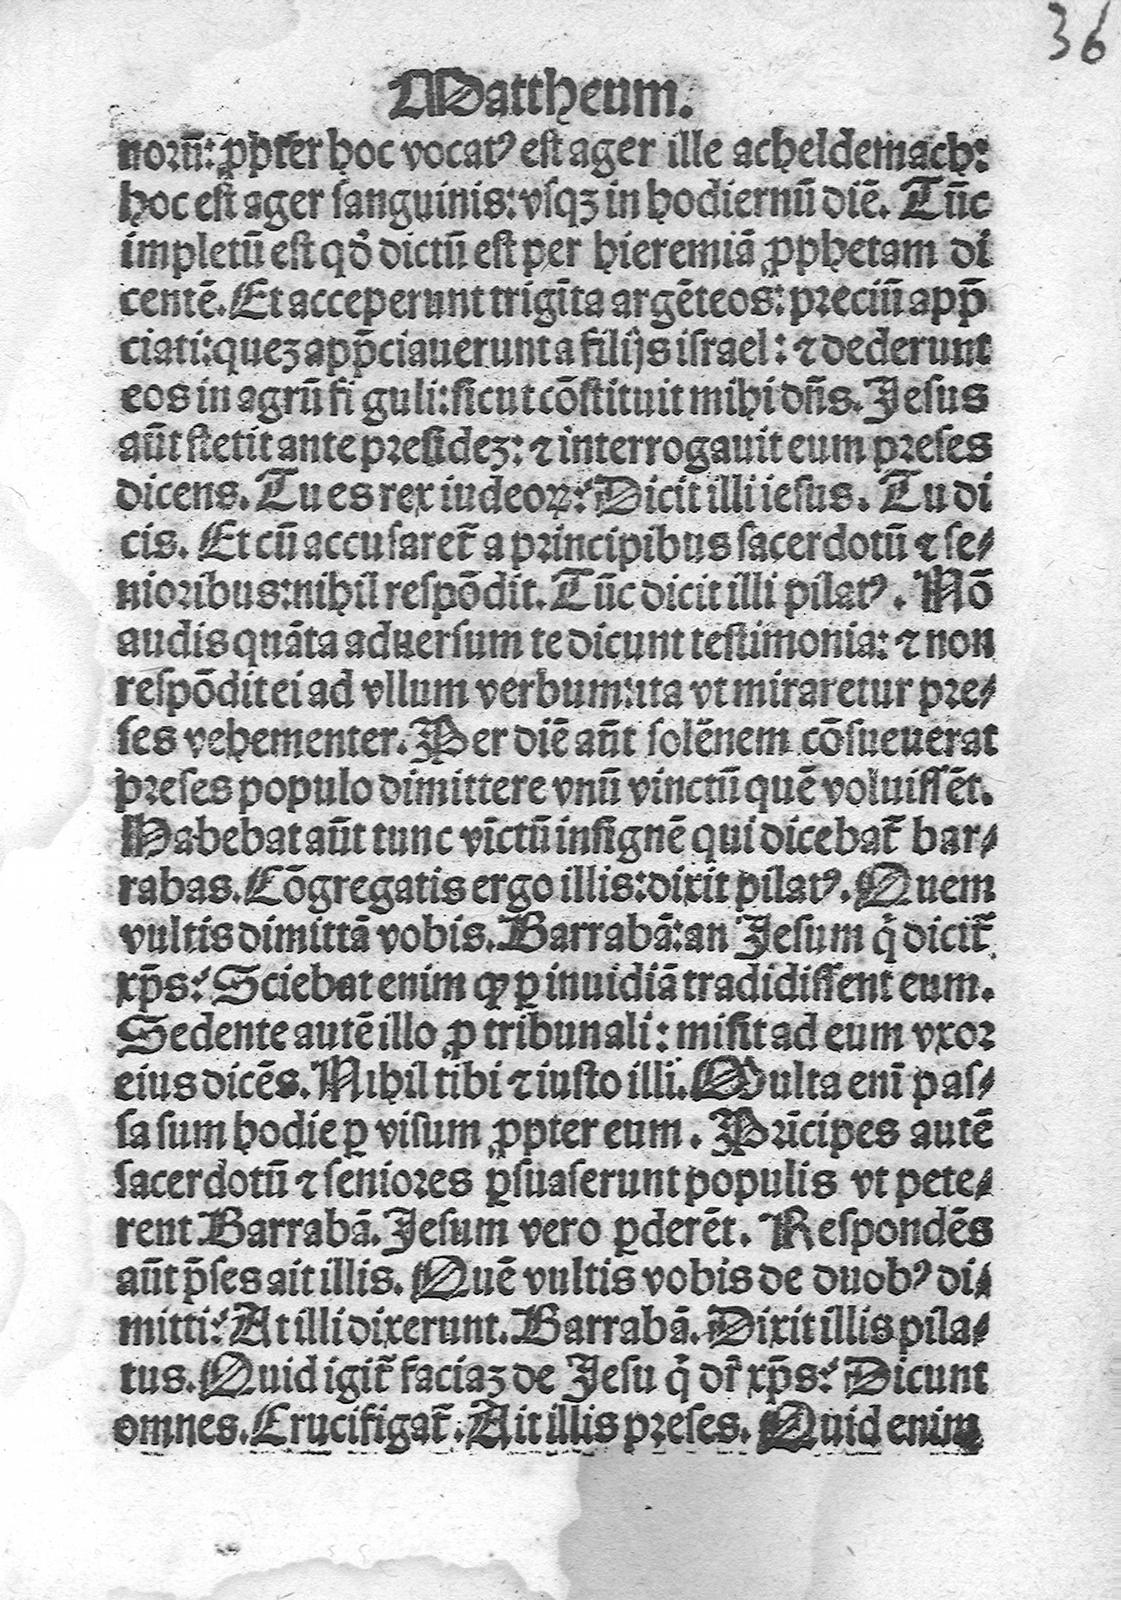 36
Mattheum.
norū: ꝓpter hoc vocatꝰ est ager ille acheldemach:
hoc est ager sanguinis: vsqꝫ in hodiernū diē. Tūc
impletū est qđ dictū est per hieremiā ꝓphetam di
centē. Et acceperunt trigīta argētos: preciū app̄
ciati: quez app̄ciauerunt a filijs israel: ⁊ dederunt
eos in agrū figuli: sicut cōstituit mihi dn̄s. Jesus
aūt stetit ante presidez: ⁊ interrogauit eum preses
dicens. Tu es rex iudeoꝝ? Dicit illi iesus. Tu di
cis. Et cū accusaret̄ a principibus sacerdotū ⁊ se-
nioribus: nihil respōdit. Tūc dicit illi pilatꝰ. Nō
audis quāta aduersum te dicunt testimonia: ⁊ non
respōdit ei ad vllum verbum: ita vt miraretur pre-
ses vehementer. Per diē aūt solēnem cōsueuerat
preses populo dimittere vnū vinctū quē voluissēt.
Habebat aūt tunc vīctū insignē qui dicebat̄ bar-
rabas. Cōgregatis ergo illis: dixit pilatꝰ. Quem
vultis dimittā vobis. Barrabā: an Jesum q̇ dicit̄
xp̄s? Sciebat enim ꝙ ꝑ inuidiā tradidissent eum.
Sedente autē illo ꝓ tribunali: misit ad eum vxor
eius dicēs. Nihil tibi ⁊ iusto illi. Multa enī pas-
sa sum hodie ꝑ visum ꝓpter eum. Prīcipes autē
sacerdotū ⁊ seniores ꝑsuaserunt populis vt pete-
rent Barrabā. Jesum vero ꝑderēt. Respondēs
aūt p̄ses ait illis. Quē vultis vobis de duobꝰ di-
mitti? At illi dixerunt. Barrabā. Dixit illis pila-
tus. Quid igit̄ faciaz de Jesu q̇ dr̄ xp̄s? Dicunt
omnes. Crucifigat̄. Ait illis preses. Quid enim